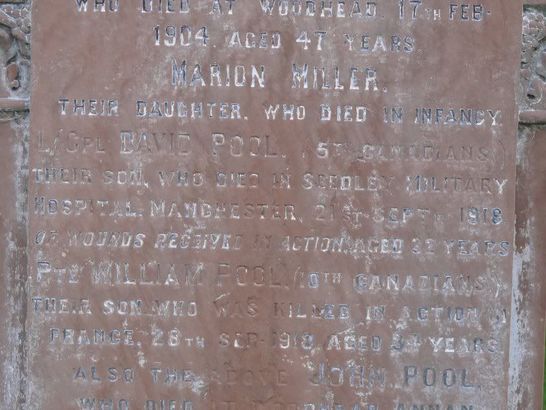 WHO DIED AT WOODHEAD. 17TH FEB.
1904. AGED 47 YEARS.
MARION MILLER.
THEIR DAUGHTER. WHO DIED IN INFANCY.
L/CPL DAVID POOL. (5TH CANADIANS.)
THEIR SON, WHO DIED IN SEEDLEY MILITARY
HOSPITAL, MANCHESTER, 21ST SEPT 1918
OF WOUNDS RECEIVED IN ACTION, AGED 32 YEARS
PTE WILLIAM POOL, (10TH CANADIANS.)
THEIR SON, WHO WAS KILLED IN ACTION IN
FRANCE, 28TH SEP. 1918, AGED YEARS.
ALSO THE ABOVE JOHN POOL,
WHO DIED AT WOODHEAD ANNAN